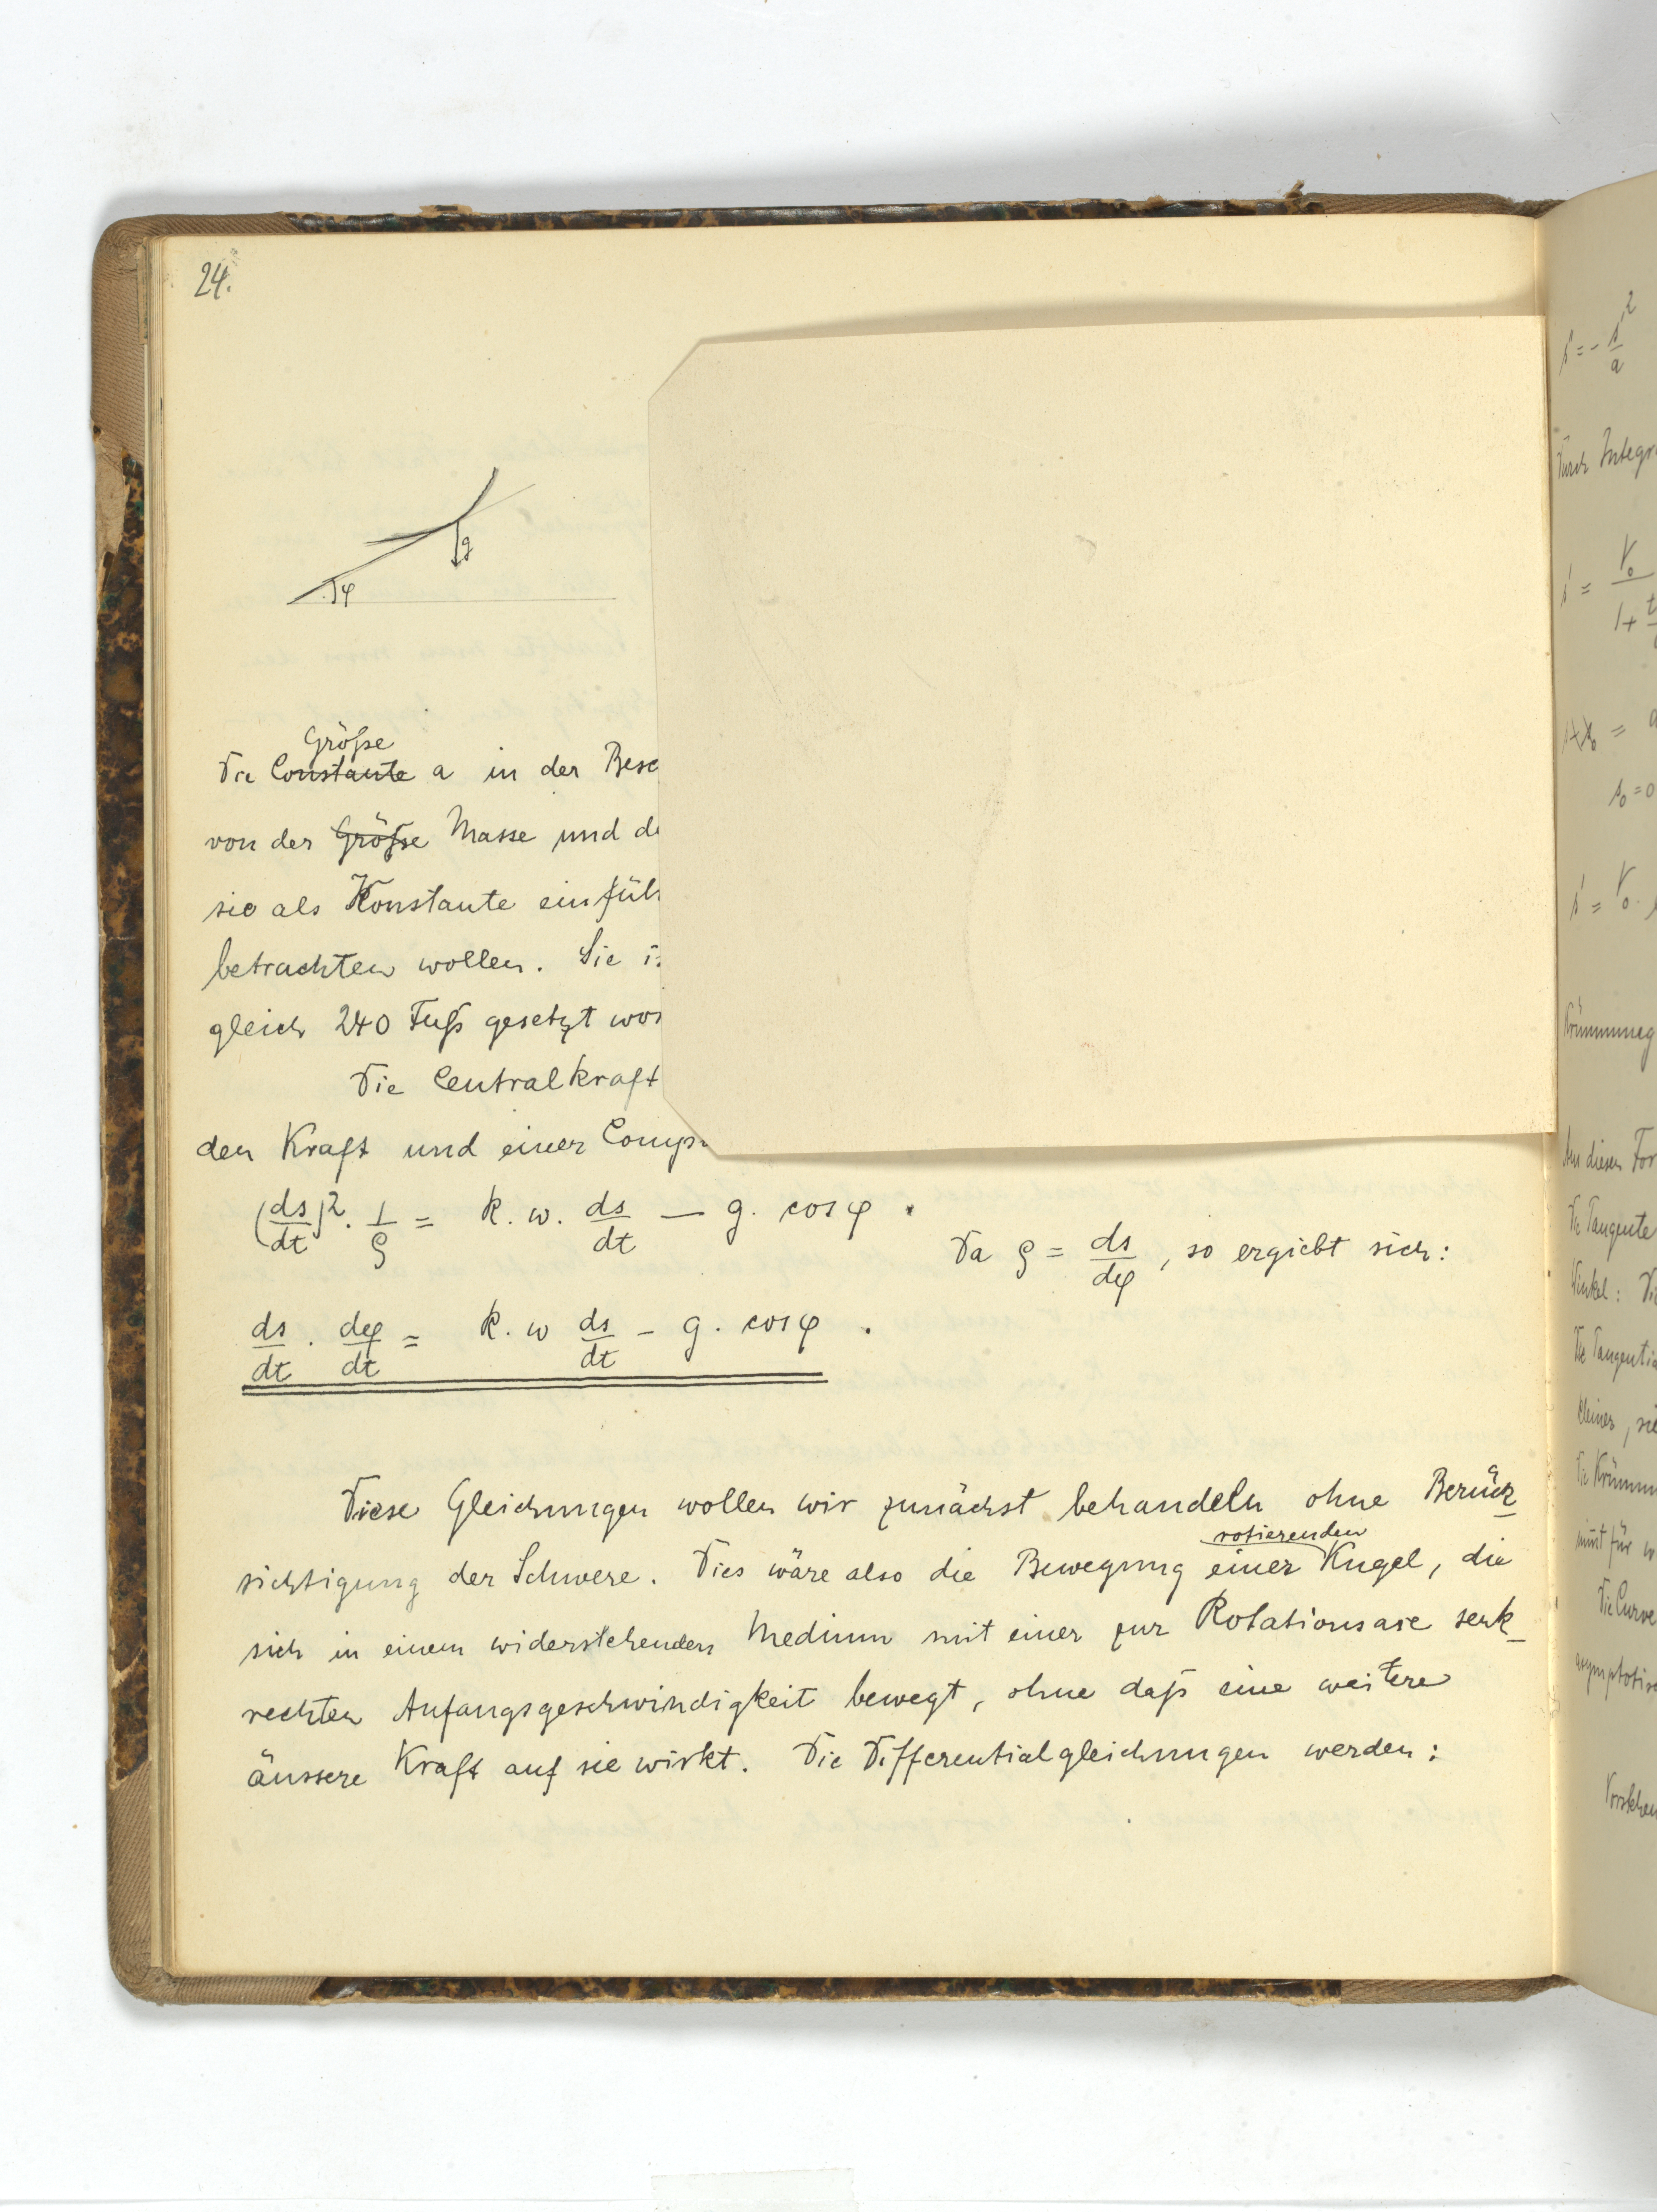 24.
g
φ
Größe
Die Constante a in der Besc
von der Größe Masse und de
sie als Konstante einfüh
betrachten wollen. Sie is
gleich 240 Fuß gesetzt wor
Die Centralkraft
den Kraft und einer Compo
(ds/dt)². 1/ρ = k. w. ds/dt — g. cos φ .
Da ρ = ds/dφ, so ergiebt sich:
ds/dt . dφ/dt = k. w ds/dt – g. cos φ .
Diese Gleichungen wollen wir zunächst behandeln ohne Berück
rotierenden
sichtigung der Schwere. Dies wäre also die Bewegung einer Kugel, die
sich in einem widerstehenden Medium mit einer zur Rotationsaxe senk
rechten Anfangsgeschwindigkeit bewegt, ohne daß eine weitere
äussere Kraft auf sie wirkt. Die Differentialgleichungen werden:
Durch Integr
1+
s₀ = 0
Krümmung
Aus diesen For
Die Tangente
Winkel: Di
Die Tangentia
kleiner, sie
Die Krümm
Die Curve
asymptotis